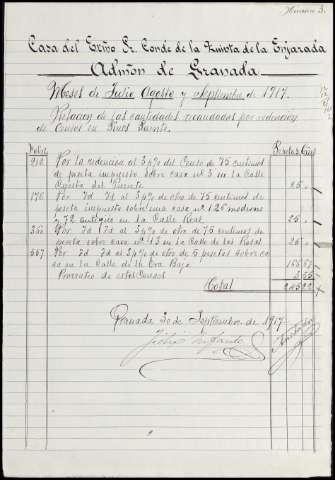 Número 3.
Casa del Exmo Sr. Conde de la Quinta de la Enjarada
Admón de Granada
Meses de Julio Agosto y Septiembre de 1917.
Relacion de las cantidades recaudadas por redencion
de Censos en Pinos Puente.
Pesetas Cén
Por la redencion al 3 p% del Censo de 75 centimos
de peseta impuesto sobre casa nº 3 en la Calle
del Puente 25 -
176 Por Id Id al 3 p% de otro de 75 centimos de
peseta impuesto sobre una casa nº 126 moderno
y 72 antiguo en la Calle Real 25 -
Por Id Id al 3 p% de otro de 75 centimos de
peseta sobre casa nº 43 en la Calle de la 25 -
557 Por Id Id al 3 p% de otro de 5 pesetas sobre ca
sa en la Calle de la Era Baja
Prorrateo de estos Censos
Total
Granada 30 de Septiembre de 1917